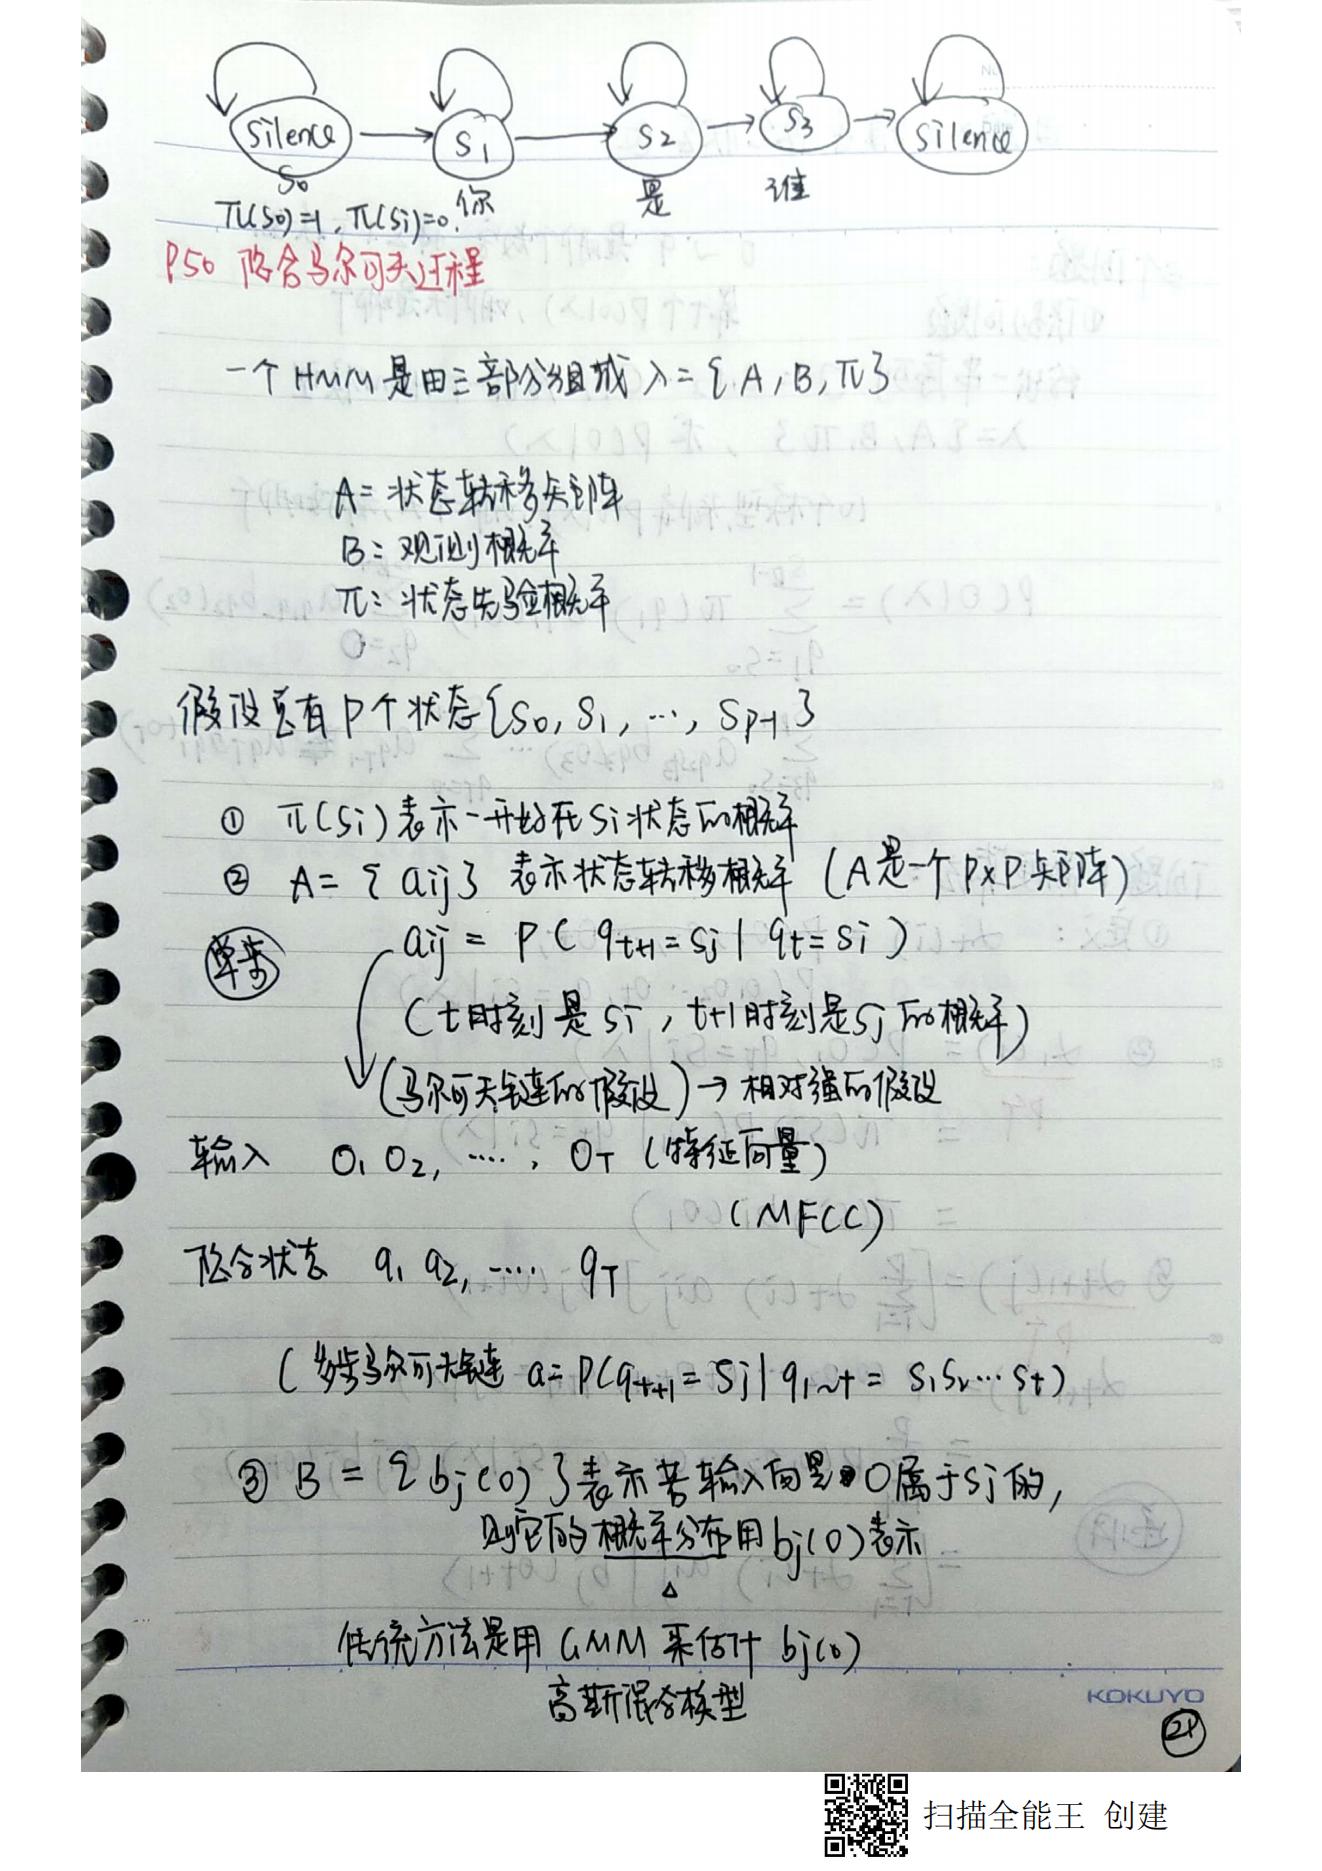 Silence S1 S2 S3 Silence
S0 你 是 谁
π(S0)=1, π(Si)=0.
P50 隐含马尔可夫过程
一个HMM是由三部分组成 λ={A, B, π}
A= 状态转移矩阵
B: 观测概率
π: 状态先验概率
假设总有P个状态{S0, S1, ···, SP-1}
① π(Si)表示一开始在Si状态的概率
② A={aij} 表示状态转移概率 (A是一个P×P矩阵)
单步 aij = P( qt+1=Sj | qt=Si )
(t时刻是Si, t+1时刻是Sj的概率)
(马尔可夫链的假设)→相对强的假设
输入 O1 O2, ····, OT (特征向量)
(MFCC)
隐含状态 q1 q2, ···· qT
(多步马尔可夫链 a= P(qt+1 = Sj | q1~t = S1S2···St)
③ B = {bj(O)}表示若输入向量O属于Sj的,
则它的概率分布用bj(O)表示
△
传统方法是用 GMM 来估计 bj(O)
高斯混合模型
KOKUYO
21
扫描全能王 创建